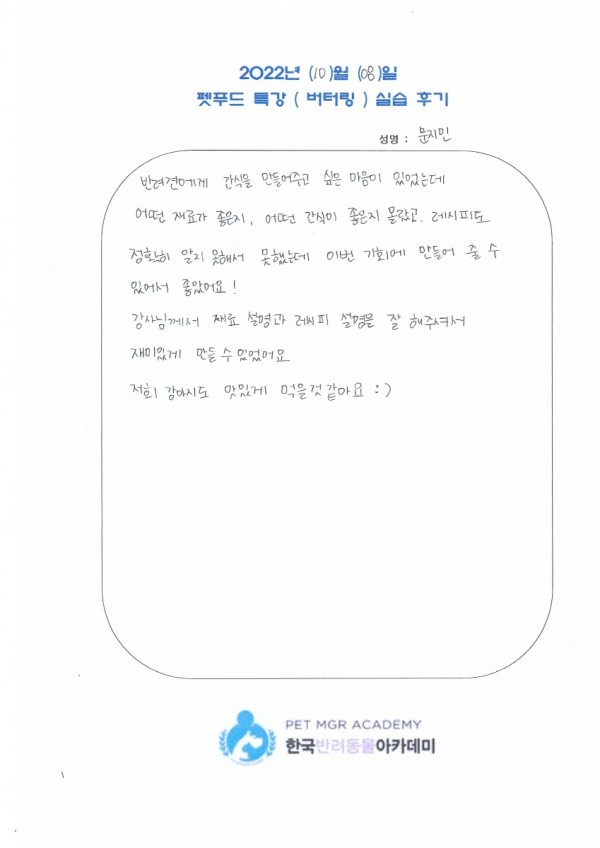 2022년 (10)월 (08)일
펫푸드 특강 ( 버터링 ) 실습 후기
성명 : 문지민
반려견에게 간식을 만들어주고 싶은 마음이 있었는데
어떤 재료가 좋은지, 어떤 간식이 좋은지 몰랐고. 레시피도
정확히 알지 못해서 못했는데 이번 기회에 만들어 줄 수
있어서 좋았어요!
강사님께서 재료 설명과 레시피 설명을 잘 해주셔서
재미있게 만들 수 있었어요
저희 강아지도 맛있게 먹을것 같아요 :)
PET MGR ACADEMY
한국반려동물아카데미